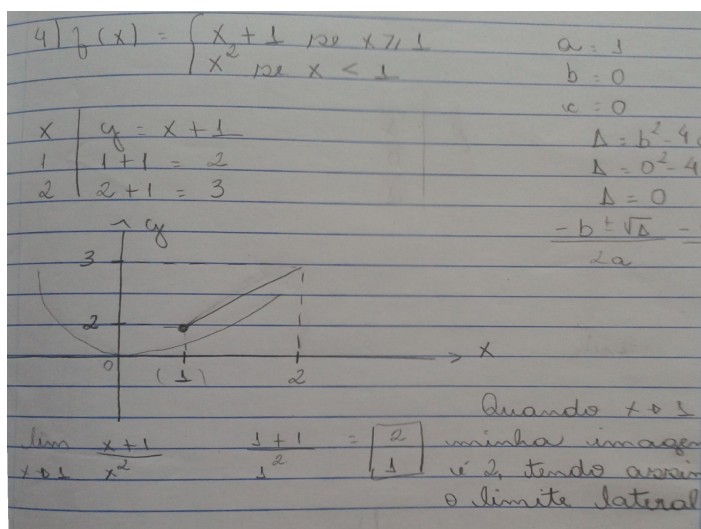 4) f(x) = { x + 1 se x ⩾ 1
x² se x < 1
a = 1
b = 0
c = 0
Δ = b² - 4
Δ = 0² - 4
Δ = 0
-b ± √Δ -
2a
x | y = x + 1
1 | 1 + 1 = 2
2 | 2 + 1 = 3
y
3
2
0 (1) 2 x
lim x→1 x+1/x² 1+1/1² = [2 1]
Quando x→1
minha imagem
é 2, tendo assim
o limite lateral